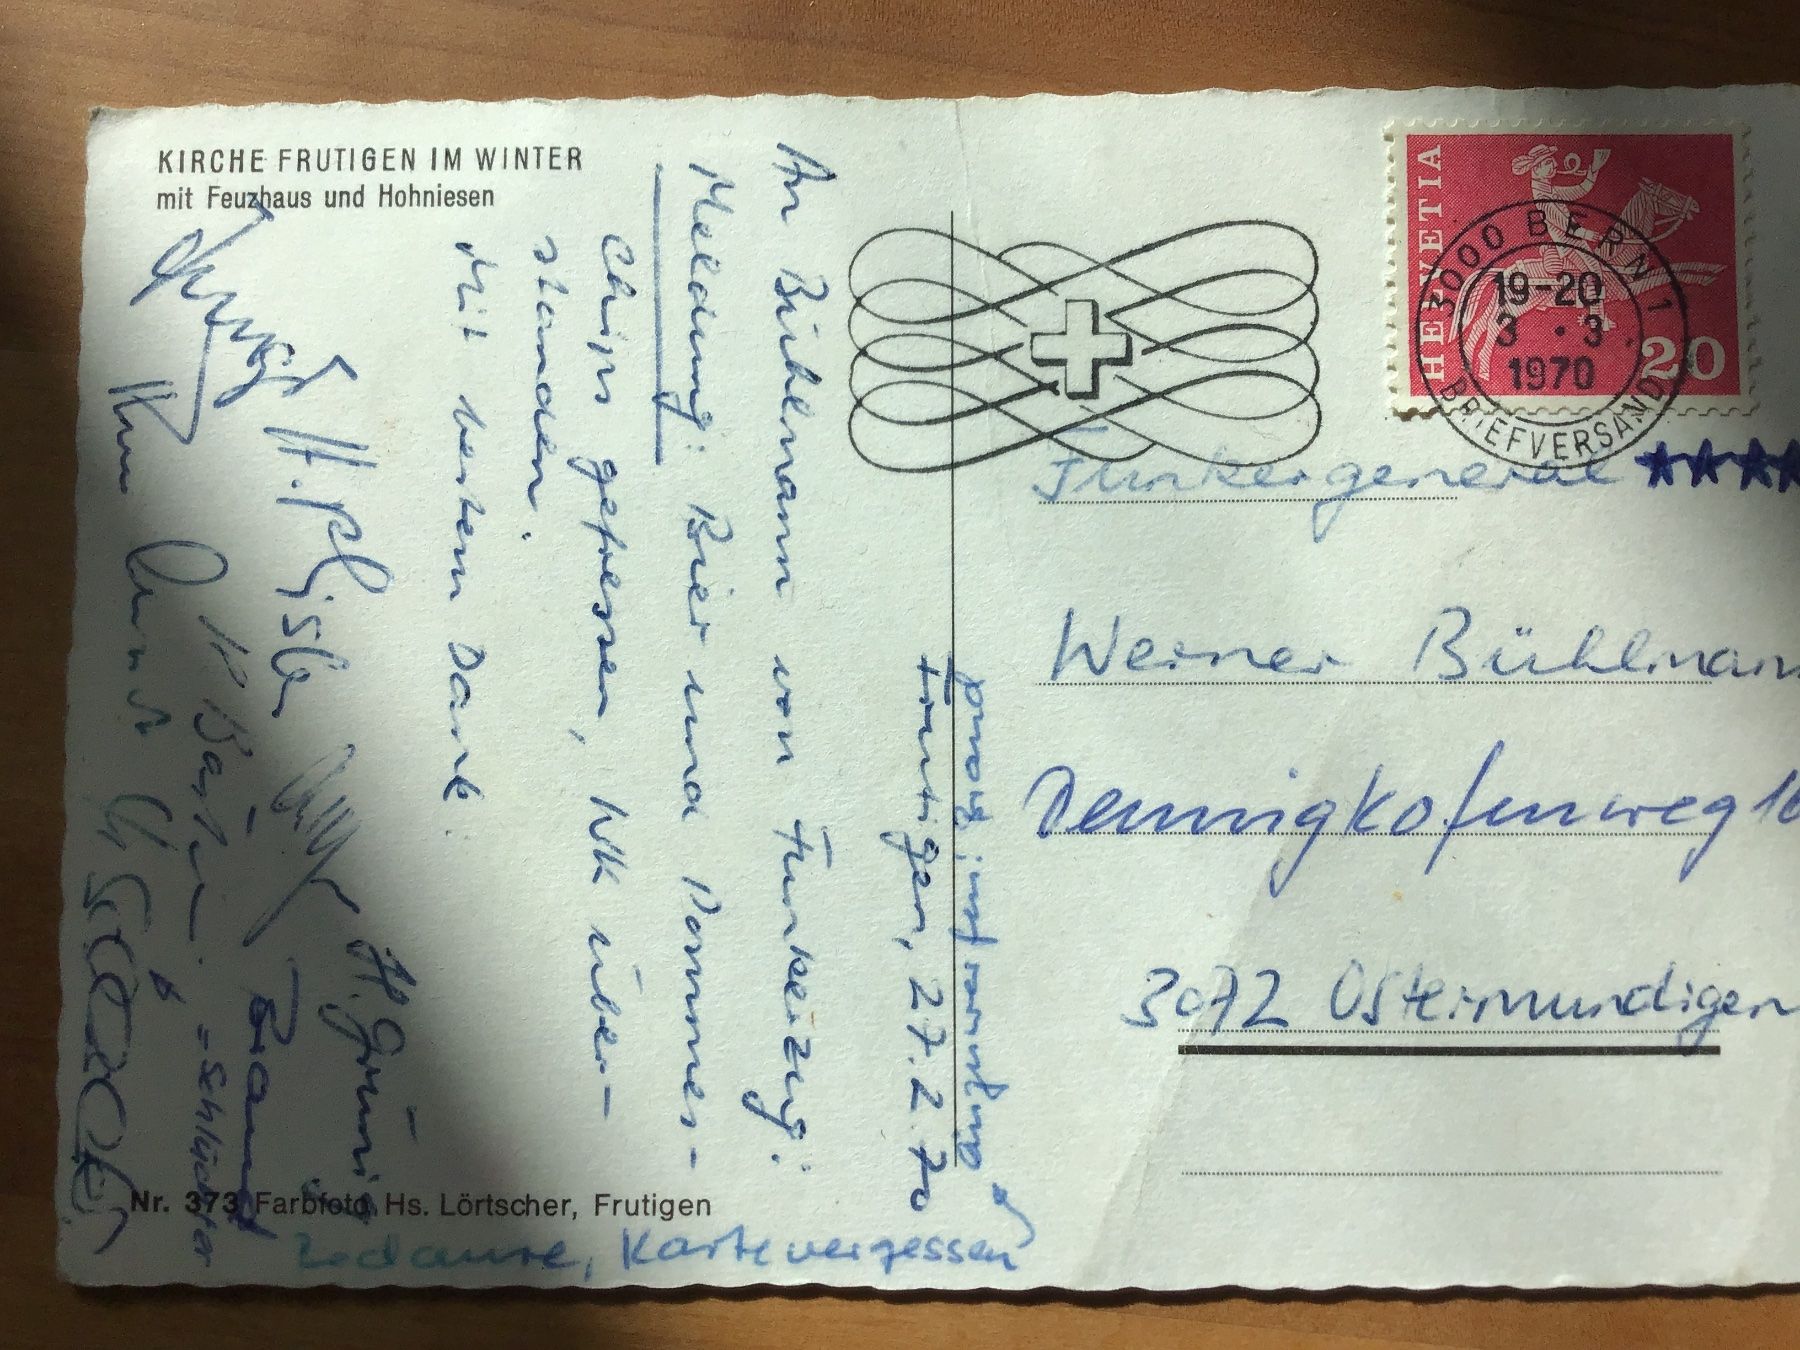 KIRCHE FRUTIGEN IM WINTER
mit Feuzhaus und Hohniesen
Frutigen, 27.2.70
An Bühlmann von Funkerzug:
Meldung: Bier und Pommes-
Chips gefressen, WK über-
standen.
Mit bestem Dank:
H. Gfeller
H. Grünig
Brand
= Schlüchter
Nr. 373 Farbfoto Hs. Lörtscher, Frutigen
Karte vergessen
HELVETIA
20
3000 BERN 1
19-20
3.3.
1970
BRIEFVERSAND
Funkergeneral ★★★★
Werner Bühlmann
Dennigkofenweg 16
3072 Ostermundigen